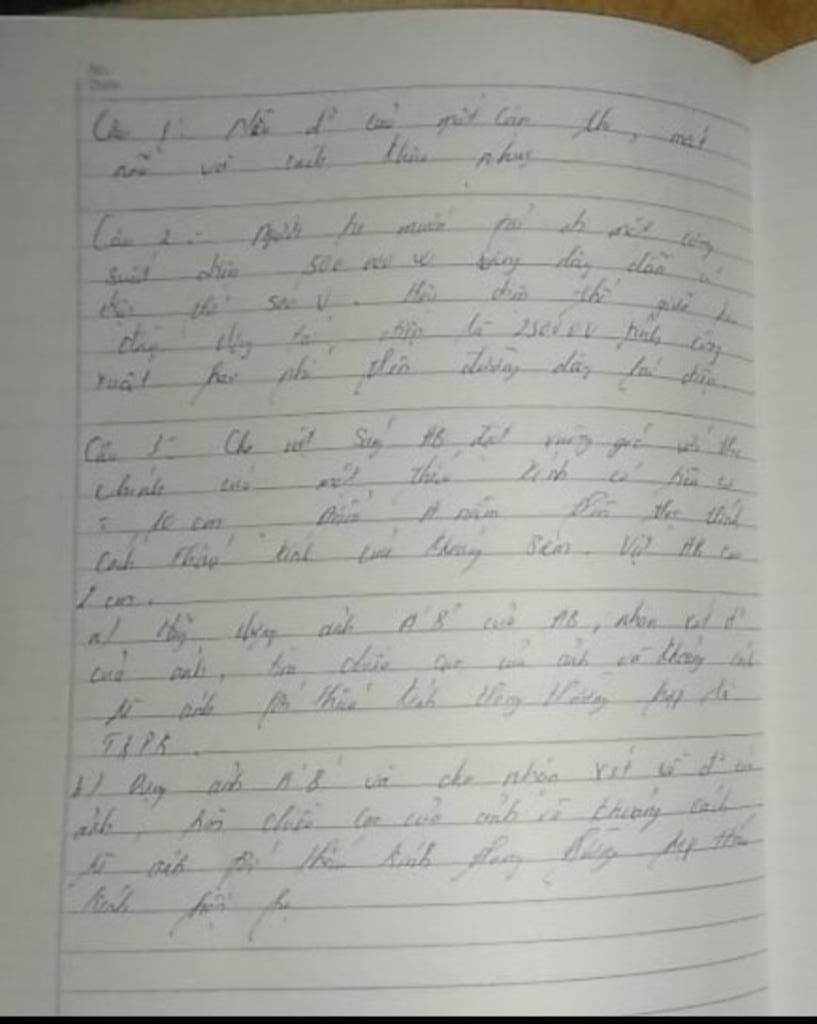 Câu 1: Nêu đ² của mắt cận thị, mắt
và cách khắc phục
Câu 2: muốn tải đi một công
suất điện 500 000 W bằng dây dẫn có
500 V. Hiệu điện thế giữa hai
đầu dây tải điện là 25000V tính công
suất hao phí trên đường dây tải điện.
Câu 3: Cho vật sáng AB đặt vuông góc với trục
chính của một thấu kính có tiêu cự
= 10 cm Điểm A nằm trên trục chính
cách thấu kính một khoảng 8cm. Vật AB cao
cm.
a) Hãy dựng ảnh A'B' của AB, nhận xét đ²
của ảnh, tìm chiều cao của ảnh và khoảng cách
từ ảnh tới thấu kính trong trường hợp là
TKPK.
b) Dựng ảnh A'B' và cho nhận xét về đ² của
ảnh, tìm chiều cao của ảnh và khoảng cách
từ ảnh tới thấu kính trong trường hợp thấu
kính hội tụ